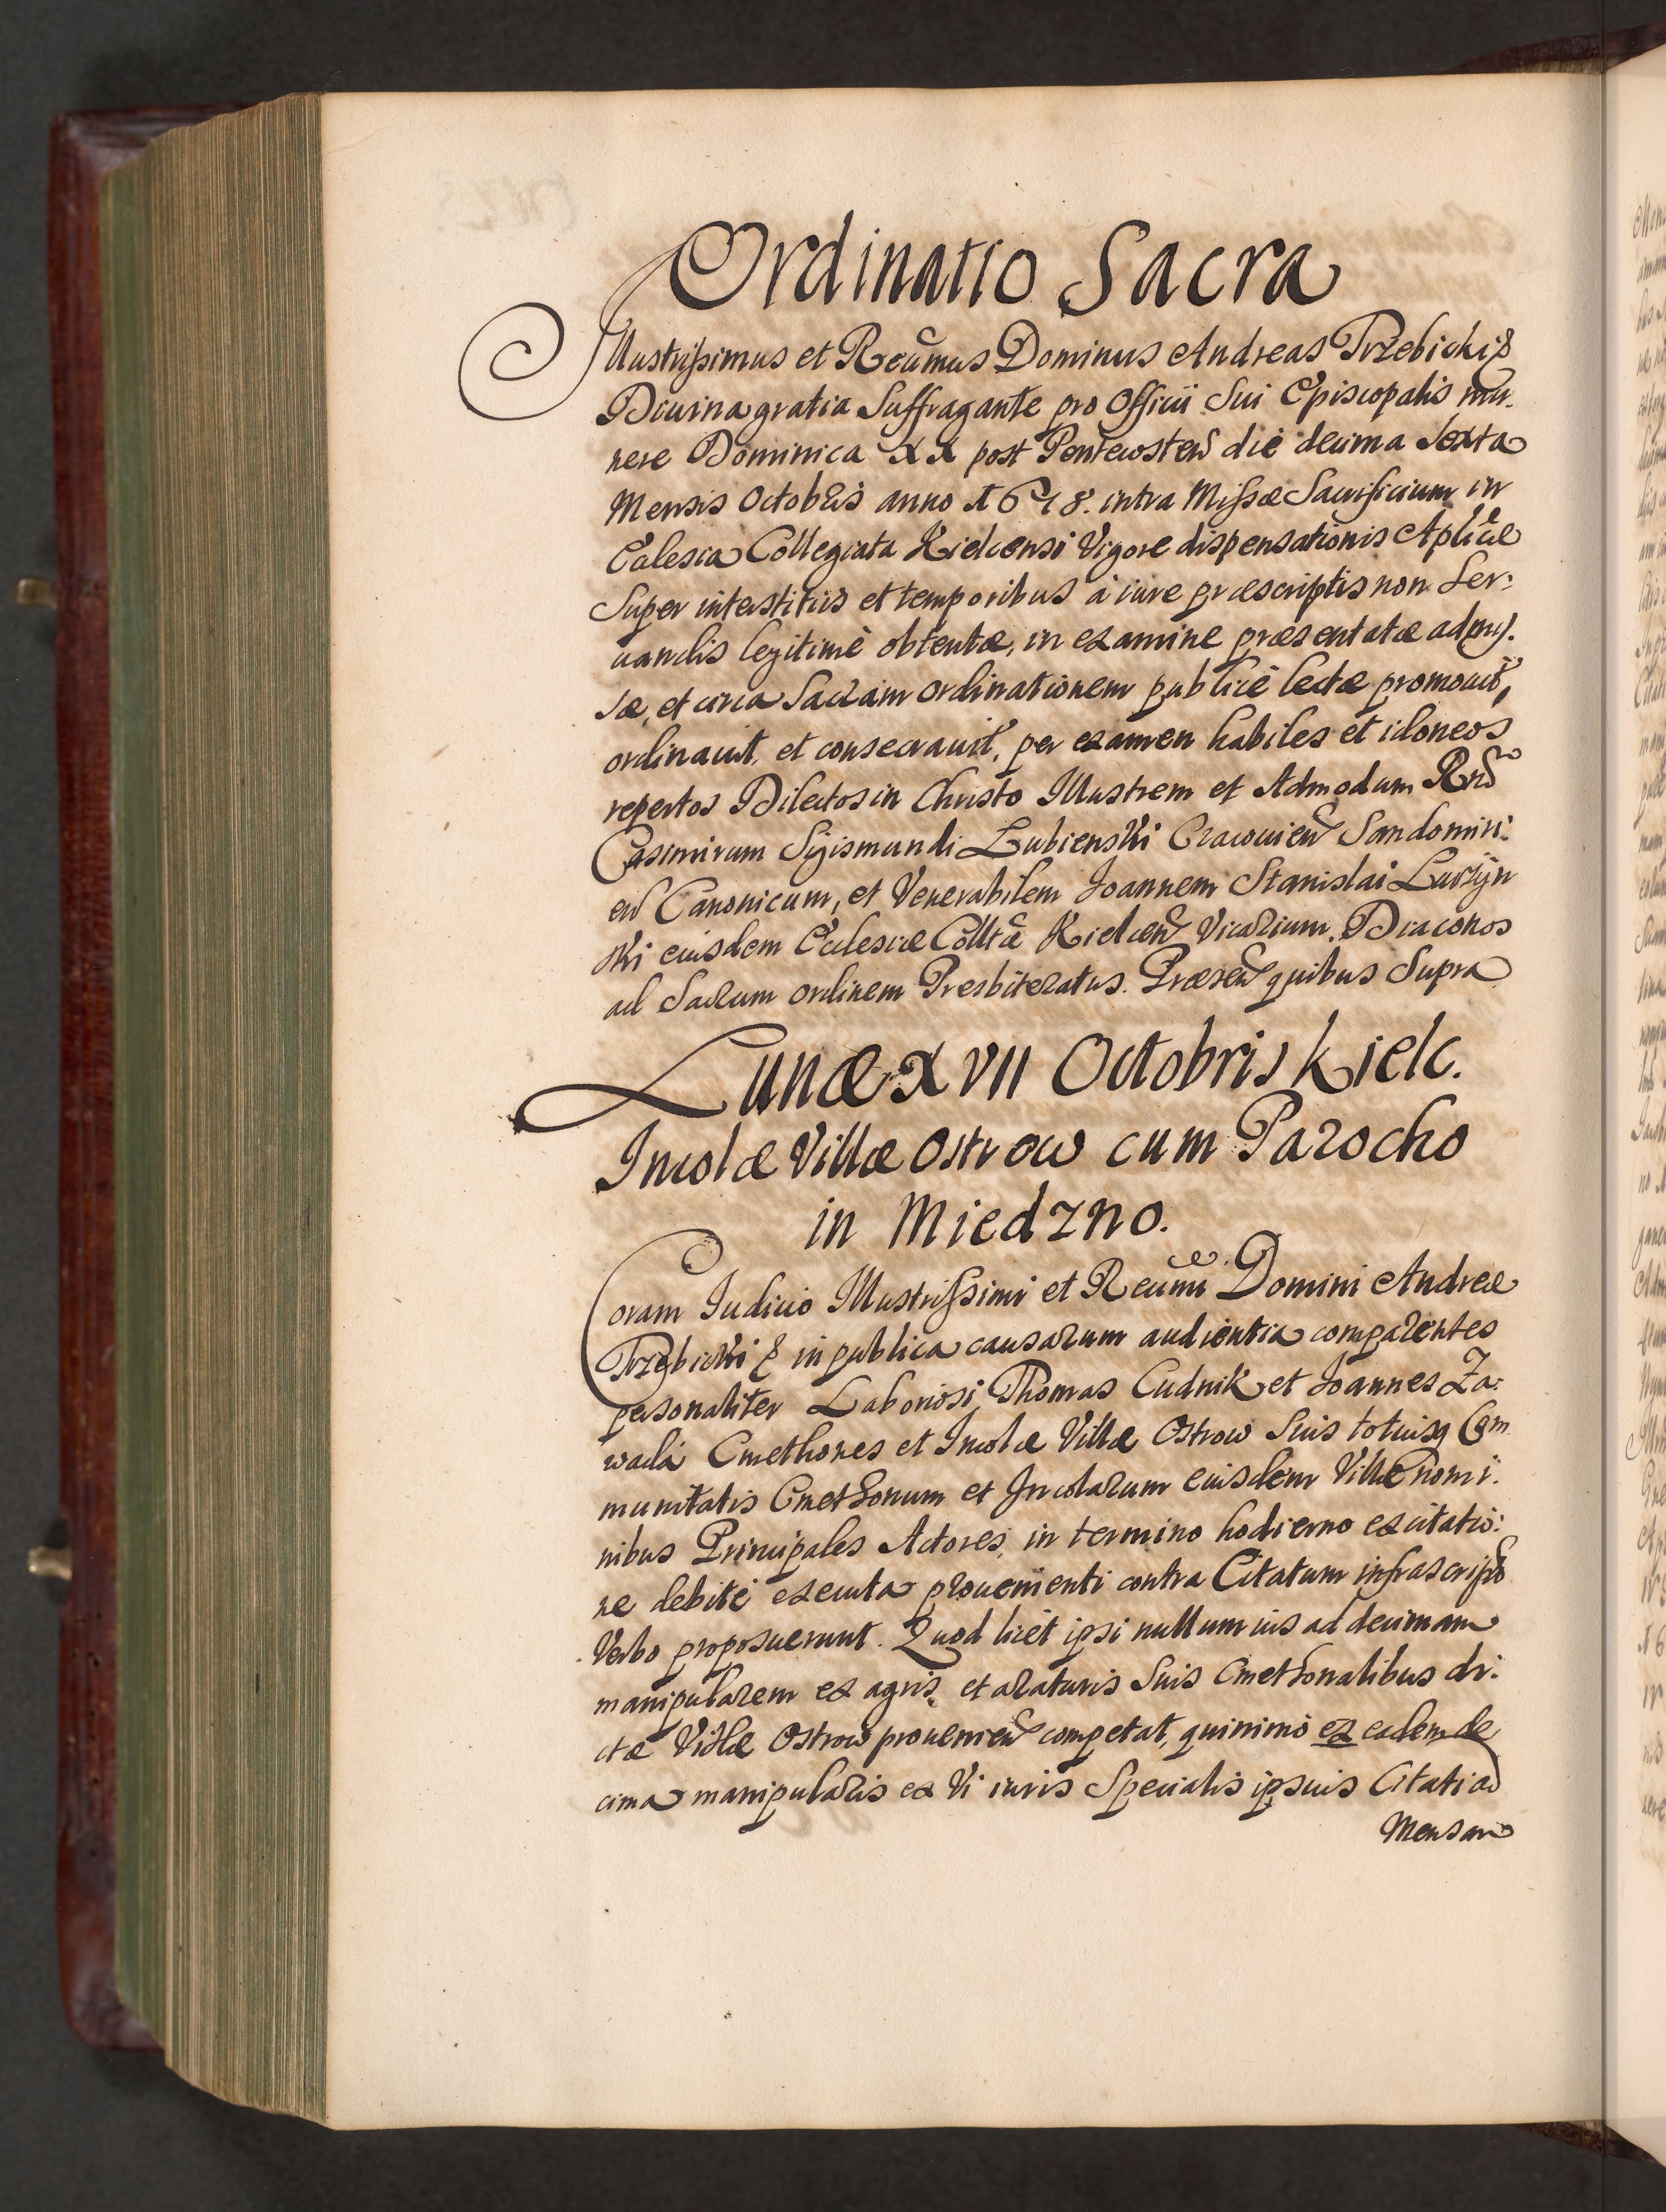 Ordinatio Sacra
Illustrissimus et Reũmus Dominus Andreas Trzebicki &
Diuina gratia Suffragante pro Officii Sui Episcopalis mu-
nere Dominica XX post Pentecosteñ die decima Sexta
Mensis Octobris anno 1678. intra Missæ Sacrificium in
Ecclesia Collegiata Kielcensi Vigore dispensationis Aplicæ
Super interstitiis et temporibus à iure præscriptis non Ser:
uandis legitimè obtentæ, in examine præsentatæ admis.
sæ, et circa Sacram ordinationem publicè lectæ promouit,
ordinauit, et consecrauit, per examen habiles et idoneos
repertos Dilectos in Christo Illustrem et Admodum Rnd
Casimirum Sigismundi Lubienski Cracouieñ Sandomiri:
eñ Canonicum, et Venerabilem Joannem Stanislai Lurzyn
ski eiusdem Ecclesiæ Colltæ Kielceñ Vicarium. Diaconos
ad Sacrum ordinem Presbiteratus. Præseñ quibus Supra
Lunæ XVII Octobris Kielc.
Incolæ Villæ Ostrow cum Parocho
in Miedzno.
Coram Iudicio Illustrissimi et Reũmi Domini Andreæ
Trzebicki & in publica causarum audientia comparentes
personaliter Laboriosi, Thomas Cudnik et Joannes Za:
wada Cmethones et Incolæ Villæ Ostrow Suis totiusq Com
munitatis Cmethonum et Incolarum eiusdem Villæ nomi:
nibus Principales Actores, in termino hodierno ex citatio:
ne debitè executa prouenienti contra Citatum infrascript
Verbo proposuerunt. Quod licet ipsi nullum ius ad decimam
manipularem ex agris, et araturis Suis Cmethonalibus di:
ctæ Villæ Ostrow prouenieñ competat, quinimò ex eadem de
cima manipularis ex Vi iuris Specialis ipsius Citati ad
Mensam